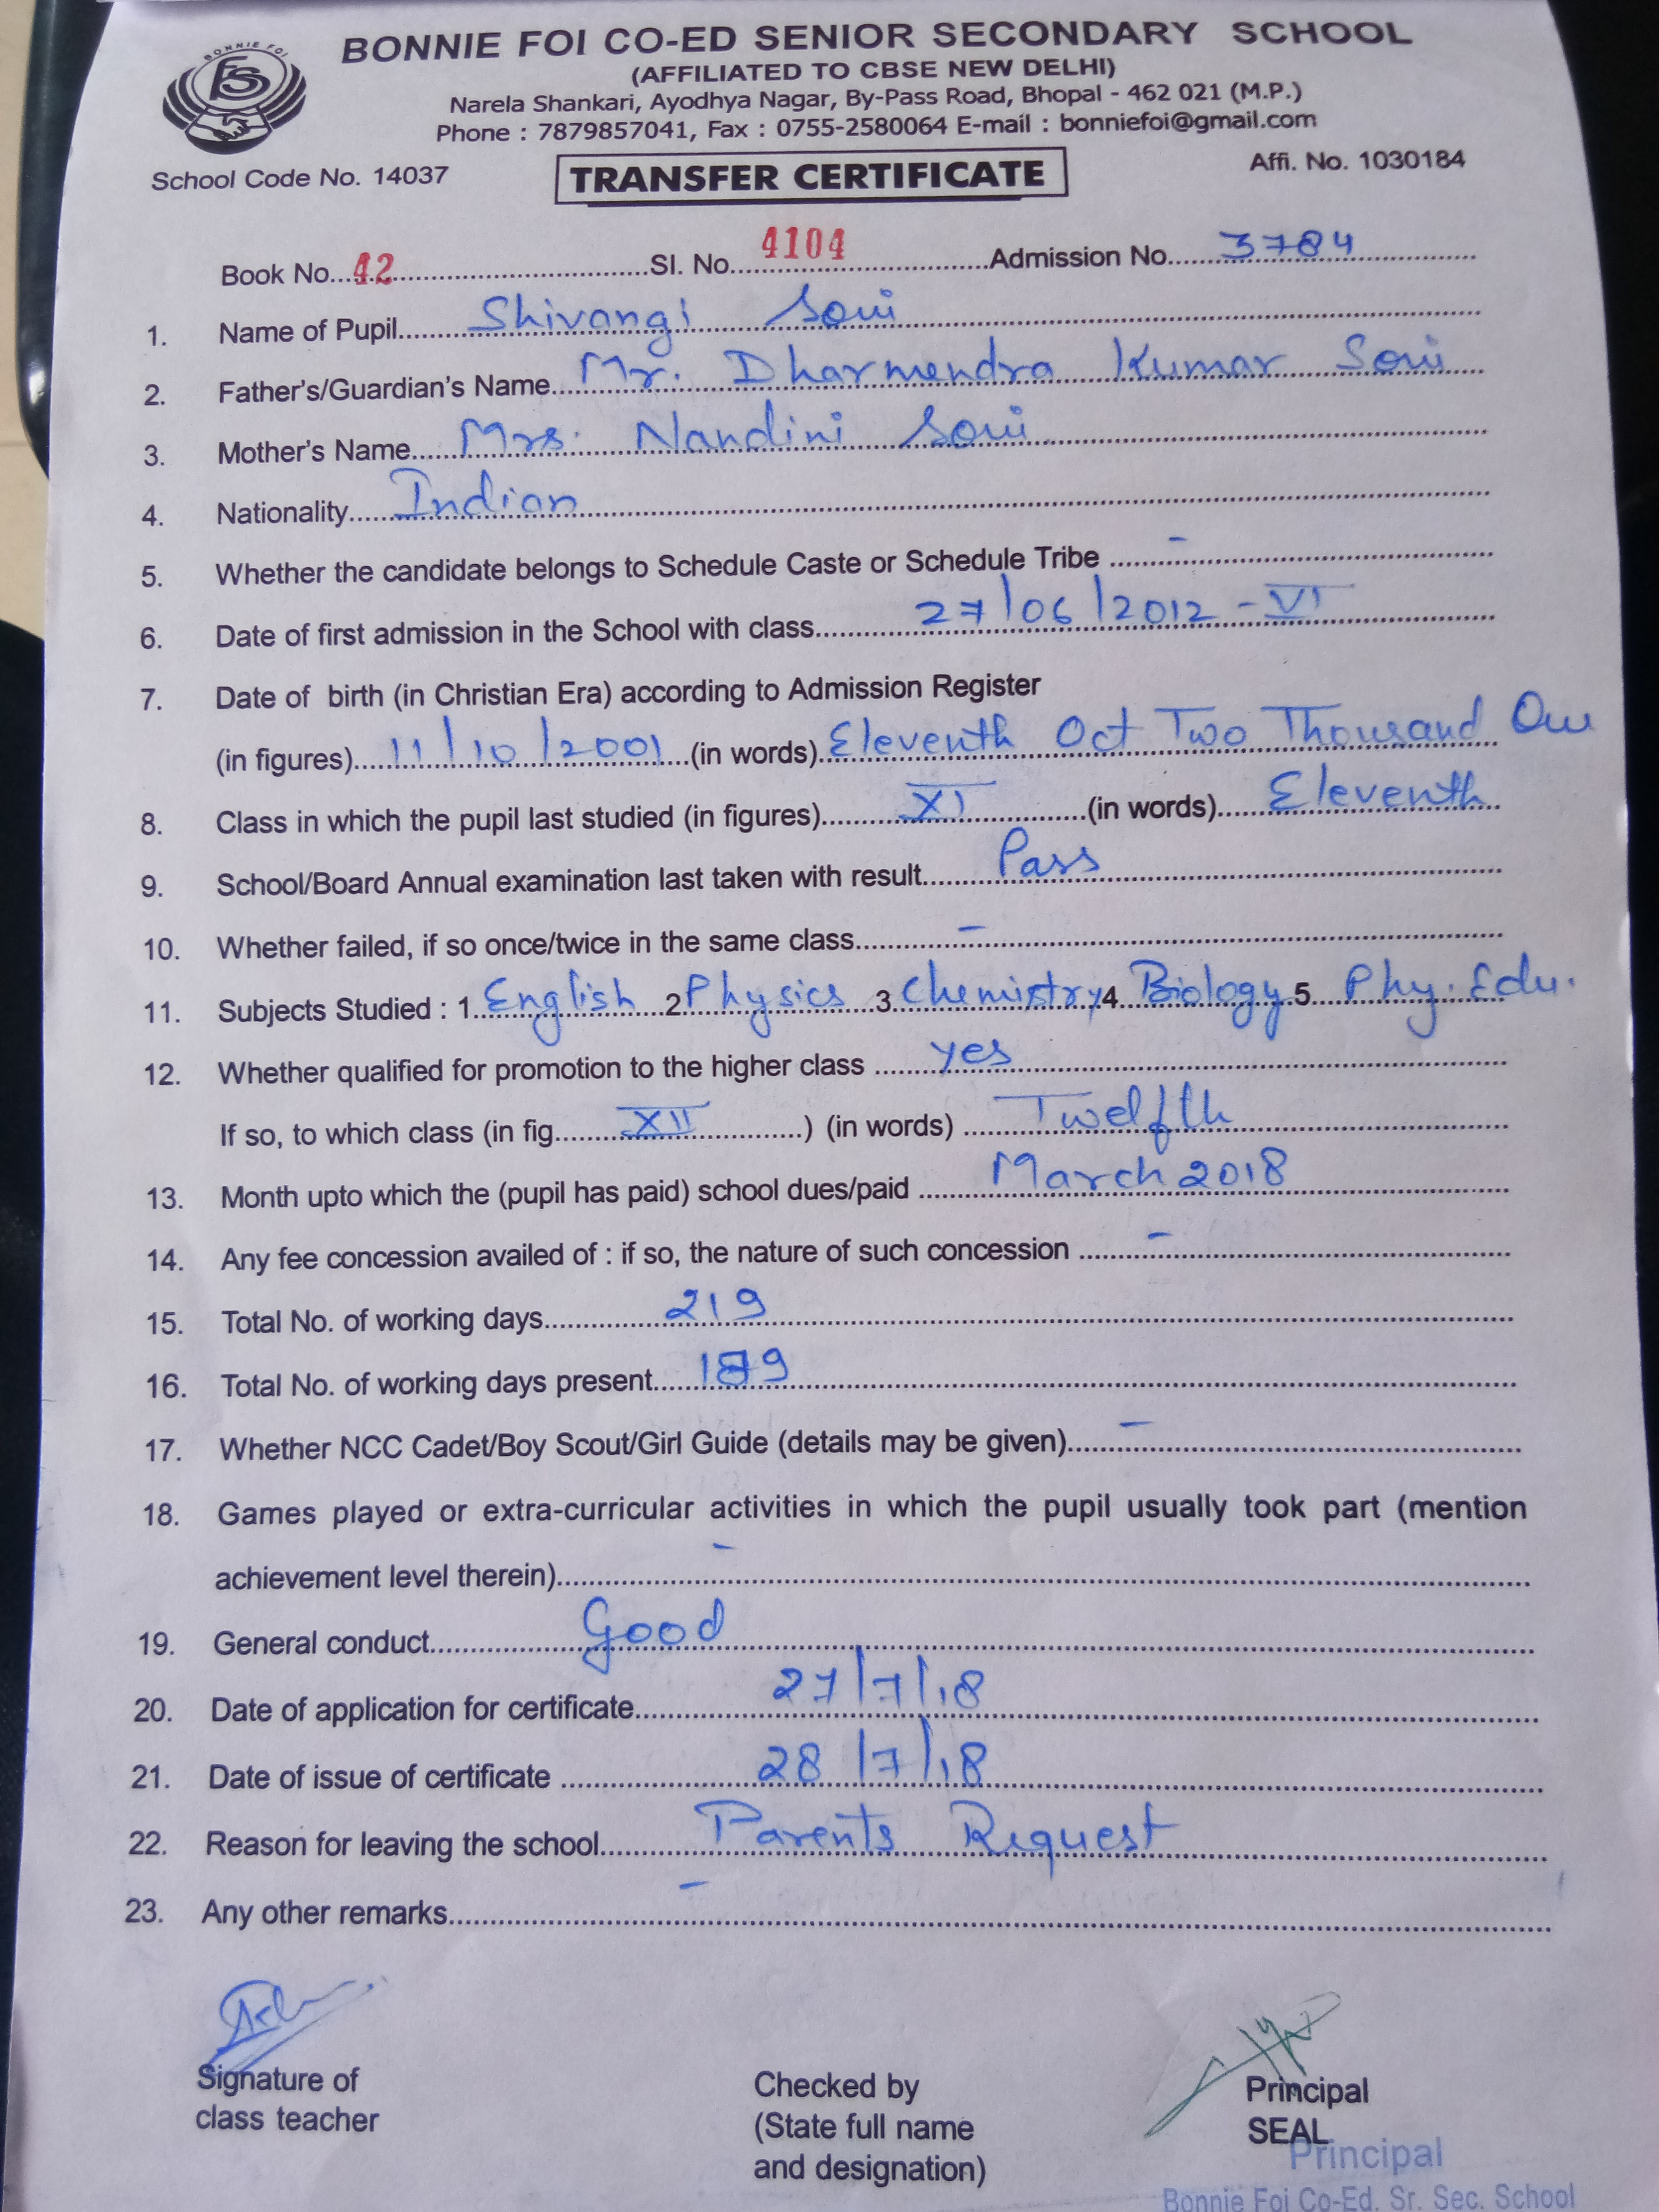 BONNIE FOI
FS
BONNIE FOI CO-ED SENIOR SECONDARY SCHOOL
(AFFILIATED TO CBSE NEW DELHI)
Narela Shankari, Ayodhya Nagar, By-Pass Road, Bhopal - 462 021 (M.P.)
Phone : 7879857041, Fax : 0755-2580064 E-mail : bonniefoi@gmail.com
School Code No. 14037 TRANSFER CERTIFICATE Affi. No. 1030184
Book No...42...Sl. No...4104...Admission No...3784
1. Name of Pupil...Shivangi Soni
2. Father's/Guardian's Name...Mr. Dharmendra Kumar Soni
3. Mother's Name...Mrs. Nandini Soni
4. Nationality...Indian
5. Whether the candidate belongs to Schedule Caste or Schedule Tribe ... -
6. Date of first admission in the School with class...27/06/2012 - VI
7. Date of birth (in Christian Era) according to Admission Register
(in figures)...11/10/2001...(in words)...Eleventh Oct Two Thousand One
8. Class in which the pupil last studied (in figures)...XI...(in words)...Eleventh
9. School/Board Annual examination last taken with result...Pass
10. Whether failed, if so once/twice in the same class... -
11. Subjects Studied : 1. English 2 Physics 3. Chemistry 4. Biology 5. Phy. Edu.
12. Whether qualified for promotion to the higher class ...yes
If so, to which class (in fig...XII...) (in words) ...Twelfth
13. Month upto which the (pupil has paid) school dues/paid ...March 2018
14. Any fee concession availed of : if so, the nature of such concession ... -
15. Total No. of working days...219
16. Total No. of working days present...189
17. Whether NCC Cadet/Boy Scout/Girl Guide (details may be given)... -
18. Games played or extra-curricular activities in which the pupil usually took part (mention
achievement level therein)... -
19. General conduct...Good
20. Date of application for certificate...27/7/18
21. Date of issue of certificate ...28/7/18
22. Reason for leaving the school...Parents Request
23. Any other remarks... -
Signature of
class teacher
Checked by
(State full name
and designation)
Principal
SEAL
Principal
Bonnie Foi Co-Ed. Sr. Sec. School